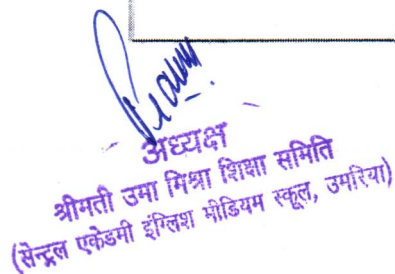 अध्यक्ष
श्रीमती उमा मिश्रा शिक्षा समिति
(सेन्ट्रल एकेडमी इंग्लिश मीडियम स्कूल, उमरिया)